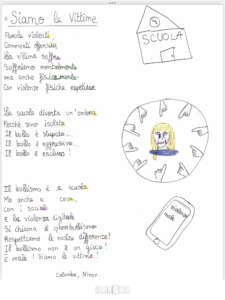 Siamo le Vittime
Parole violenti,
Commenti offensivi
La vittima soffre
Soffriamo mentalmente
ma anche fisicamente
Con violenze fisiche ripetitive.
SCUOLA
La scuola diventa un'ombra
Perché sono isolata
Il bullo è stupido...
Il bullo è aggressivo...
Il bullo è escluso!
Il bullismo è a scuola
Ma anche a casa,
con i social
E la violenza digitale
Si chiama il cyberbullismo
Respettiamo le nostre differenze!
Il bullismo non è un gioco!
È male! Siamo le vittime!
Colombe, Ninon.